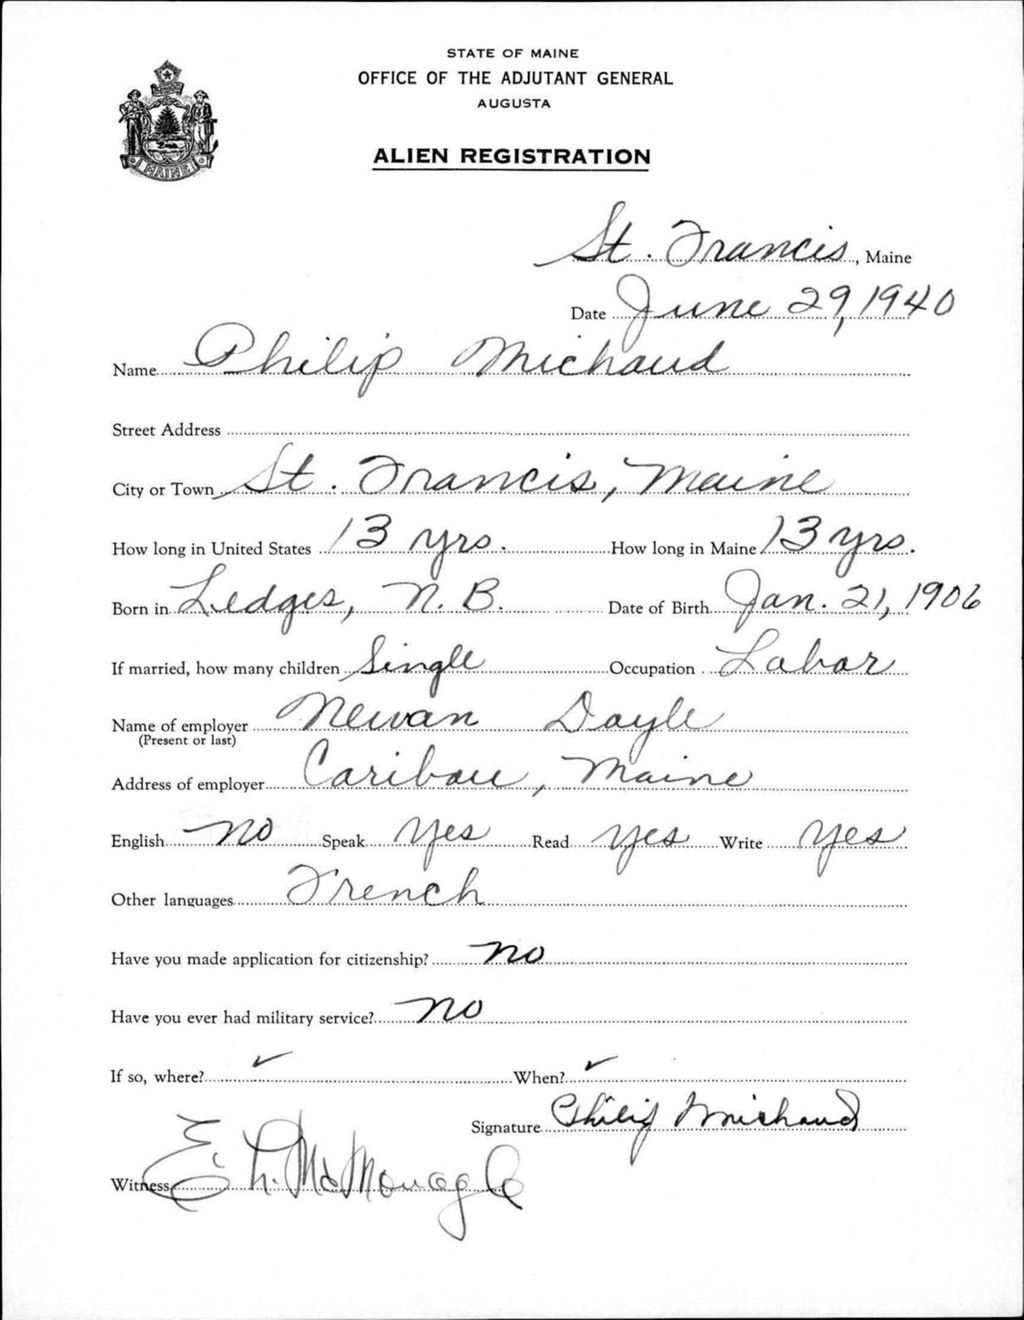 STATE OF MAINE
OFFICE OF THE ADJUTANT GENERAL
AUGUSTA
ALIEN REGISTRATION
MAINE
St. Francis, Maine
Date June 29, 1940
Name Philip Michaud
Street Address
City or Town St. Francis, Maine
How long in United States 13 yrs. How long in Maine 13 yrs.
Born in Ledges, N. B. Date of Birth Jan. 21, 1906
If married, how many children Single Occupation Labor
Name of employer Newan Doyle
(Present or last)
Address of employer Caribou, Maine
English no Speak Yes Read yes Write yes
Other languages French
Have you made application for citizenship? no
Have you ever had military service? no
If so, where? ✓ When? ✓
Signature Philip Michaud
Witness E. L. McMonagle